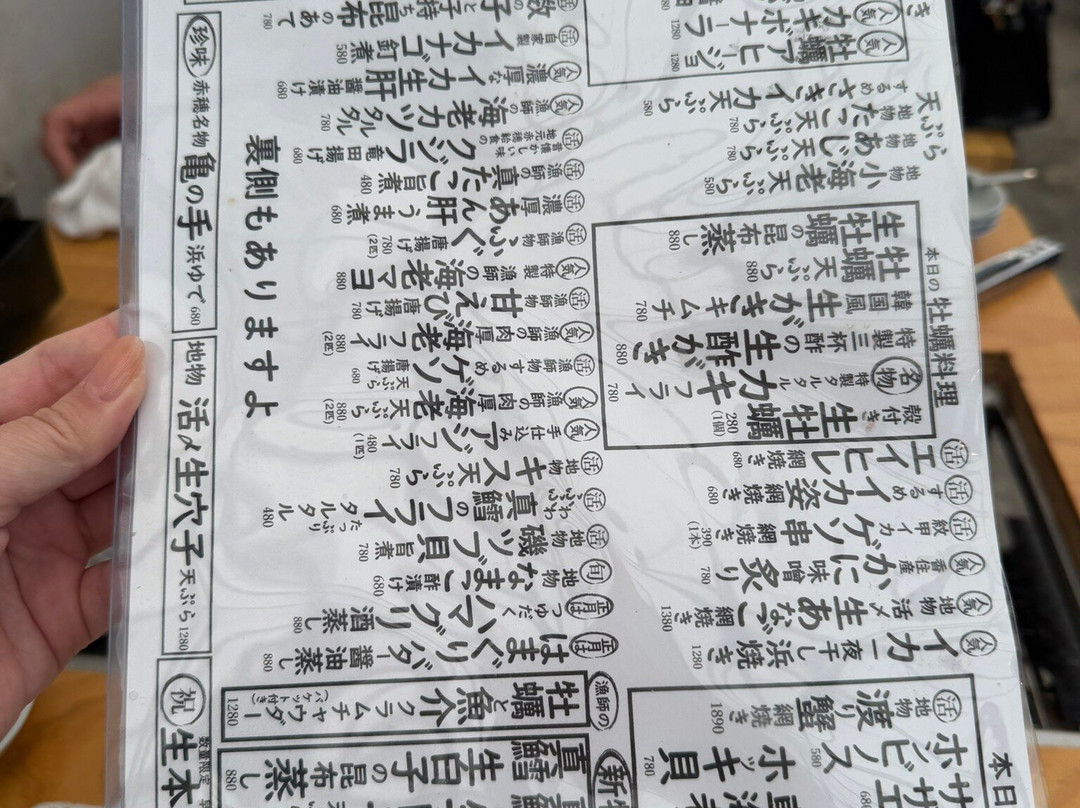 人気 カキボナーラ 1280
人気 牡蠣アヒージョ 1280
天ぷら
するめ さきイカ天ぷら 580
地物 たこ天ぷら 780
地物 あじ天ぷら 780
地物 小海老天ぷら 580
本日の牡蠣料理
生牡蠣の昆布蒸し 880
牡蠣天ぷら 880
韓国風 生がきキムチ 780
特製三杯酢の生酢がき 880
名物 特製タルタル カキフライ 780
殻付き 生牡蠣 280 (1個)
活 エイヒレ 網焼き 680
活 するめイカ姿 網焼き 680
活 紋甲イカ ゲソ串 網焼き 390 (1本)
人気 香住産 かに味噌炙り 780
人気 地物 活〆 生あなご 網焼き 1380
人気 イカ一夜干し 浜焼き 1280
活 地物 渡り蟹 網焼き 1890
ホンビノス 580
サザエ 680
ホッキ貝 780
本日
数の子と子持ち昆布のあて 780
活 自家製 イカナゴ釘煮 580
人気 濃厚な イカ生肝 醤油漬け 680
人気 漁師の 海老カツ タルタル 780
活 地元赤穂給食の昔懐かしい味 クジラ 竜田揚げ 680
活 漁師の 真たこ旨煮 480
活 濃厚 あん肝 うま煮 680
活 漁師物 ふぐ 唐揚げ 780 (2匹)
人気 特製 漁師の海老マヨ 880
活 漁師物 甘えび 唐揚げ 780
人気 漁師の肉厚 海老フライ 880 (2匹)
活 漁師物 するめゲソ 唐揚げ 天ぷら 680
人気 漁師の肉厚 海老天ぷら 880 (2匹)
人気 手仕込み アジフライ 480 (1匹)
活 地物 キス天ぷら 780
活 ふわふわ 真鱈のフライ たっぷりタルタル 480
活 地物 磯ツブ貝 旨煮 780
旬 地物 なまこ 酢漬け 680
正月は つゆだく ハマグリ 酒蒸し 880
正月は はまぐりバター醤油蒸し 880
漁師の 牡蠣と魚介 クラムチャウダー (バケット付き) 1280
真鱈 生白子の昆布蒸し 880
裏側もありますよ
珍味 赤穂名物 亀の手 浜ゆで 680
地物 活〆生穴子 天ぷら 1280
祝 生本
数量限定